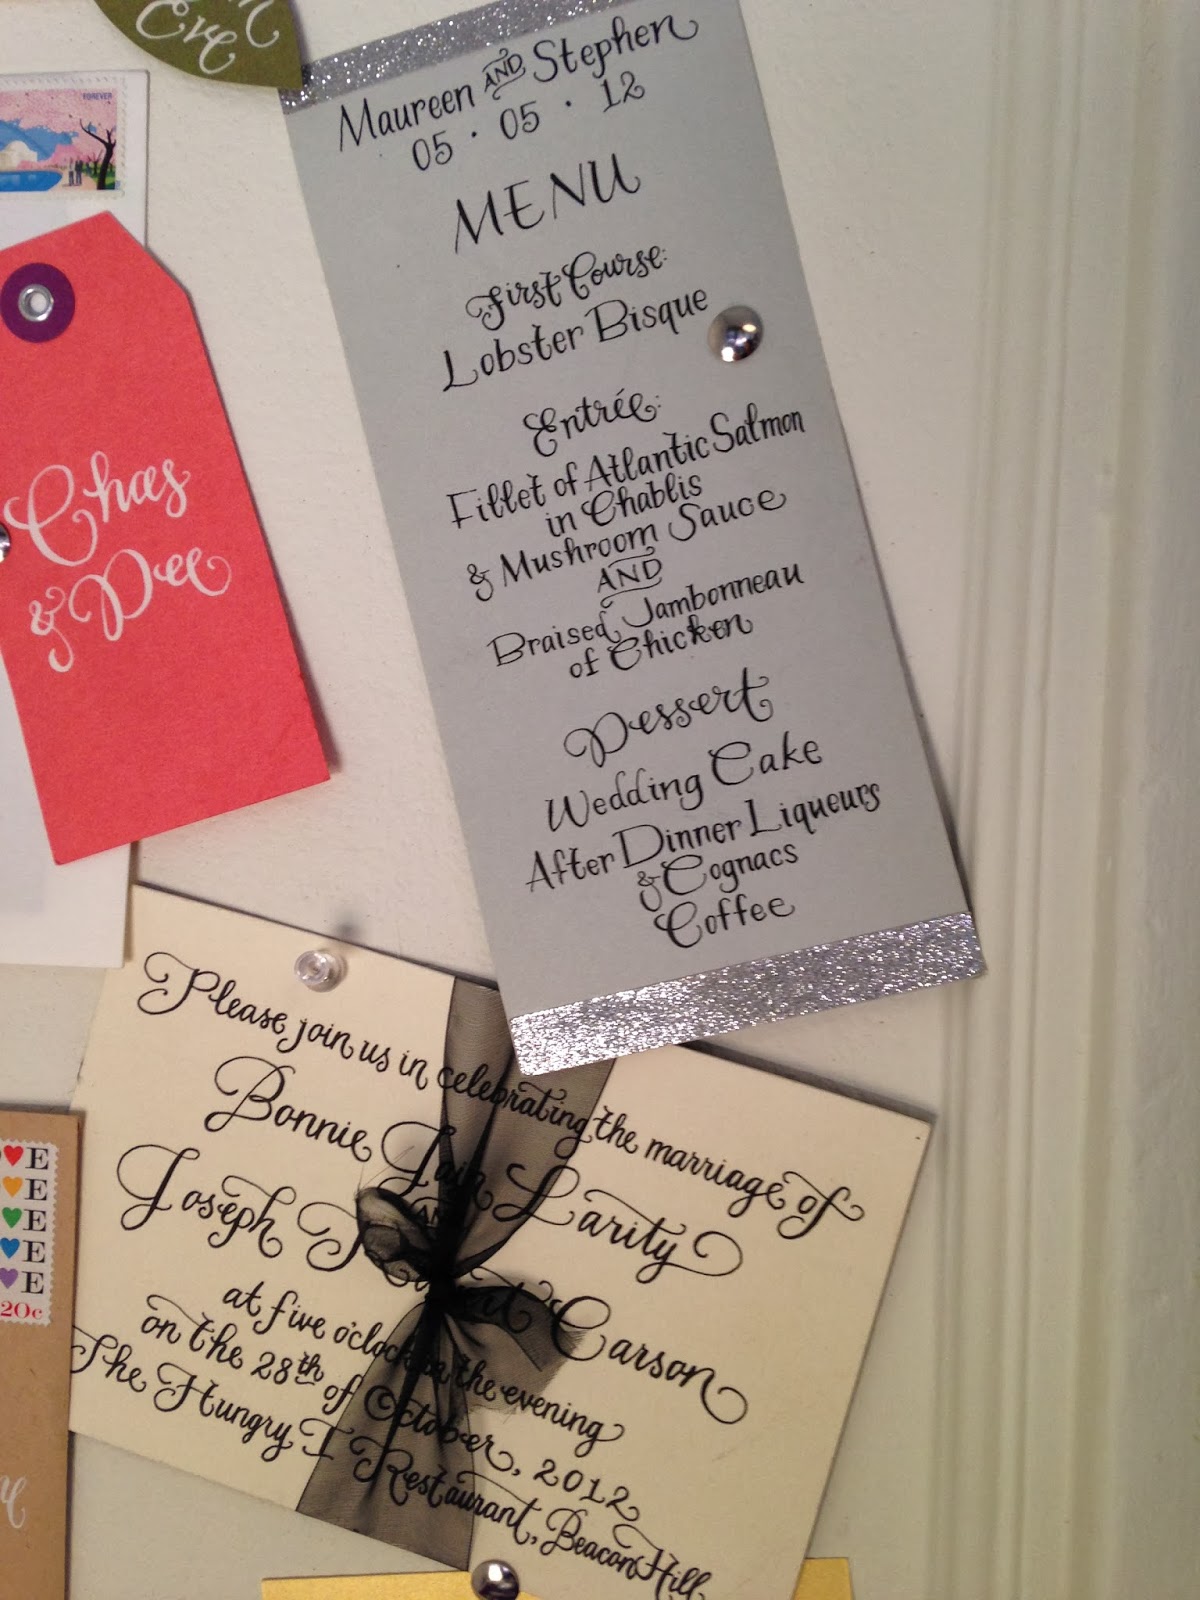 Eve
FOREVER
Maureen AND Stephen
05 · 05 · 12
MENU
First Course:
Lobster Bisque
Entrée:
Fillet of Atlantic Salmon
in Chablis
& Mushroom Sauce
AND
Braised Jambonneau
of Chicken
Dessert
Wedding Cake
After Dinner Liqueurs
& Cognacs
Coffee
Chas
& Dee
Please join us in celebrating the marriage of
Bonnie Iain Larity
AND
Joseph Carson
at five o'clock in the evening
on the 28th of October, 2012
The Hungry I Restaurant, Beacon Hill
E
E
E
E
E
20c